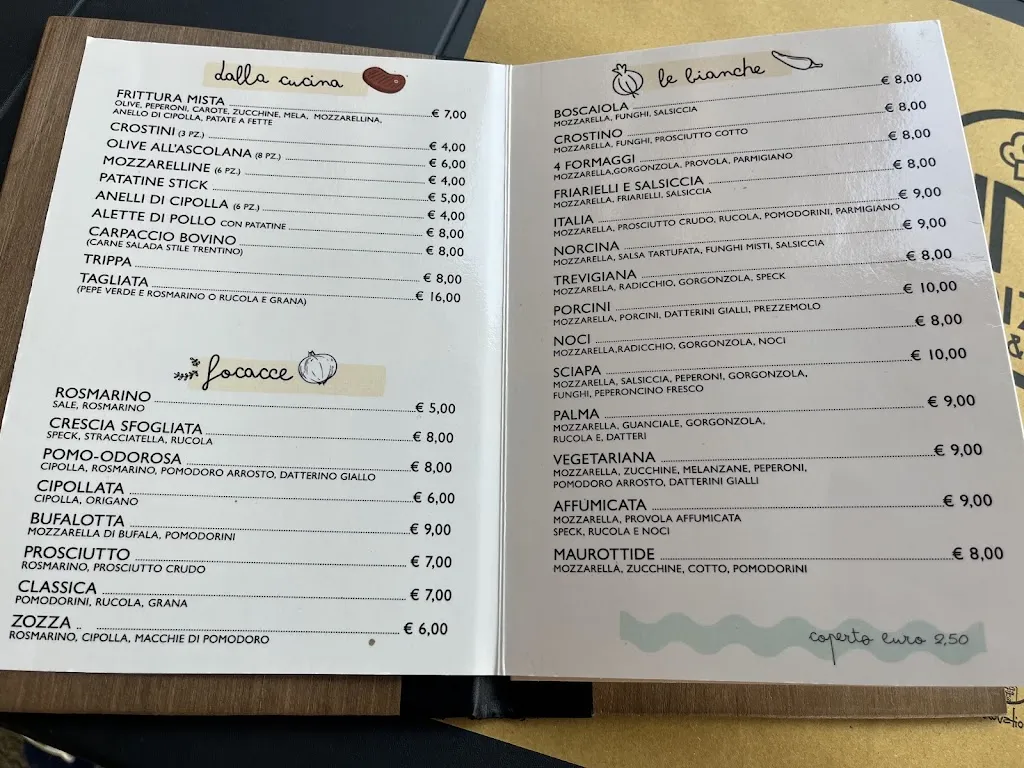 dalla cucina
FRITTURA MISTA € 7,00
OLIVE, PEPERONI, CAROTE, ZUCCHINE, MELA, MOZZARELLINA,
ANELLO DI CIPOLLA, PATATE A FETTE
CROSTINI (3 PZ.) € 4,00
OLIVE ALL'ASCOLANA (8 PZ.) € 6,00
MOZZARELLINE (6 PZ.) € 4,00
PATATINE STICK € 5,00
ANELLI DI CIPOLLA (6 PZ.) € 4,00
ALETTE DI POLLO CON PATATINE € 8,00
CARPACCIO BOVINO € 8,00
(CARNE SALADA STILE TRENTINO)
TRIPPA € 8,00
TAGLIATA € 16,00
(PEPE VERDE E ROSMARINO O RUCOLA E GRANA)
focacce
ROSMARINO € 5,00
SALE, ROSMARINO
CRESCIA SFOGLIATA € 8,00
SPECK, STRACCIATELLA, RUCOLA
POMO-ODOROSA € 8,00
CIPOLLA, ROSMARINO, POMODORO ARROSTO, DATTERINO GIALLO
CIPOLLATA € 6,00
CIPOLLA, ORIGANO
BUFALOTTA € 9,00
MOZZARELLA DI BUFALA, POMODORINI
PROSCIUTTO € 7,00
ROSMARINO, PROSCIUTTO CRUDO
CLASSICA € 7,00
POMODORINI, RUCOLA, GRANA
ZOZZA € 6,00
ROSMARINO, CIPOLLA, MACCHIE DI POMODORO
le bianche
BOSCAIOLA € 8,00
MOZZARELLA, FUNGHI, SALSICCIA
CROSTINO € 8,00
MOZZARELLA, FUNGHI, PROSCIUTTO COTTO
4 FORMAGGI € 8,00
MOZZARELLA,GORGONZOLA, PROVOLA, PARMIGIANO
FRIARIELLI E SALSICCIA € 8,00
MOZZARELLA, FRIARIELLI, SALSICCIA
ITALIA € 9,00
MOZZARELLA, PROSCIUTTO CRUDO, RUCOLA, POMODORINI, PARMIGIANO
NORCINA € 9,00
MOZZARELLA, SALSA TARTUFATA, FUNGHI MISTI, SALSICCIA
TREVIGIANA € 8,00
MOZZARELLA, RADICCHIO, GORGONZOLA, SPECK
PORCINI € 10,00
MOZZARELLA, PORCINI, DATTERINI GIALLI, PREZZEMOLO
NOCI € 8,00
MOZZARELLA,RADICCHIO, GORGONZOLA, NOCI
SCIAPA € 10,00
MOZZARELLA, SALSICCIA, PEPERONI, GORGONZOLA,
FUNGHI, PEPERONCINO FRESCO
PALMA € 9,00
MOZZARELLA, GUANCIALE, GORGONZOLA,
RUCOLA E, DATTERI
VEGETARIANA € 9,00
MOZZARELLA, ZUCCHINE, MELANZANE, PEPERONI,
POMODORO ARROSTO, DATTERINI GIALLI
AFFUMICATA € 9,00
MOZZARELLA, PROVOLA AFFUMICATA
SPECK, RUCOLA E NOCI
MAUROTTIDE € 8,00
MOZZARELLA, ZUCCHINE, COTTO, POMODORINI
coperto euro 2,50